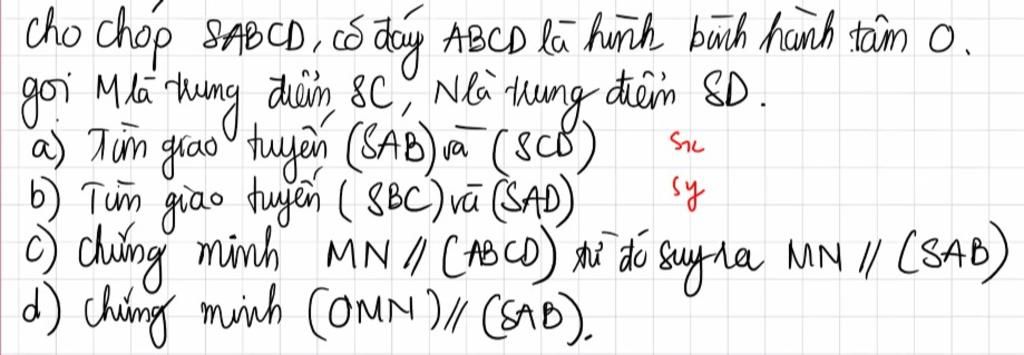 cho chóp SABCD, có đáy ABCD là hình bình hành tâm O.
gọi M là trung điểm SC, N là trung điểm SD.
a) Tìm giao tuyến (SAB) và (SCD) Sx
b) Tìm giao tuyến (SBC) và (SAD) Sy
c) chứng minh MN // (ABCD) từ đó suy ra MN // (SAB)
d) chứng minh (OMN) // (SAB).